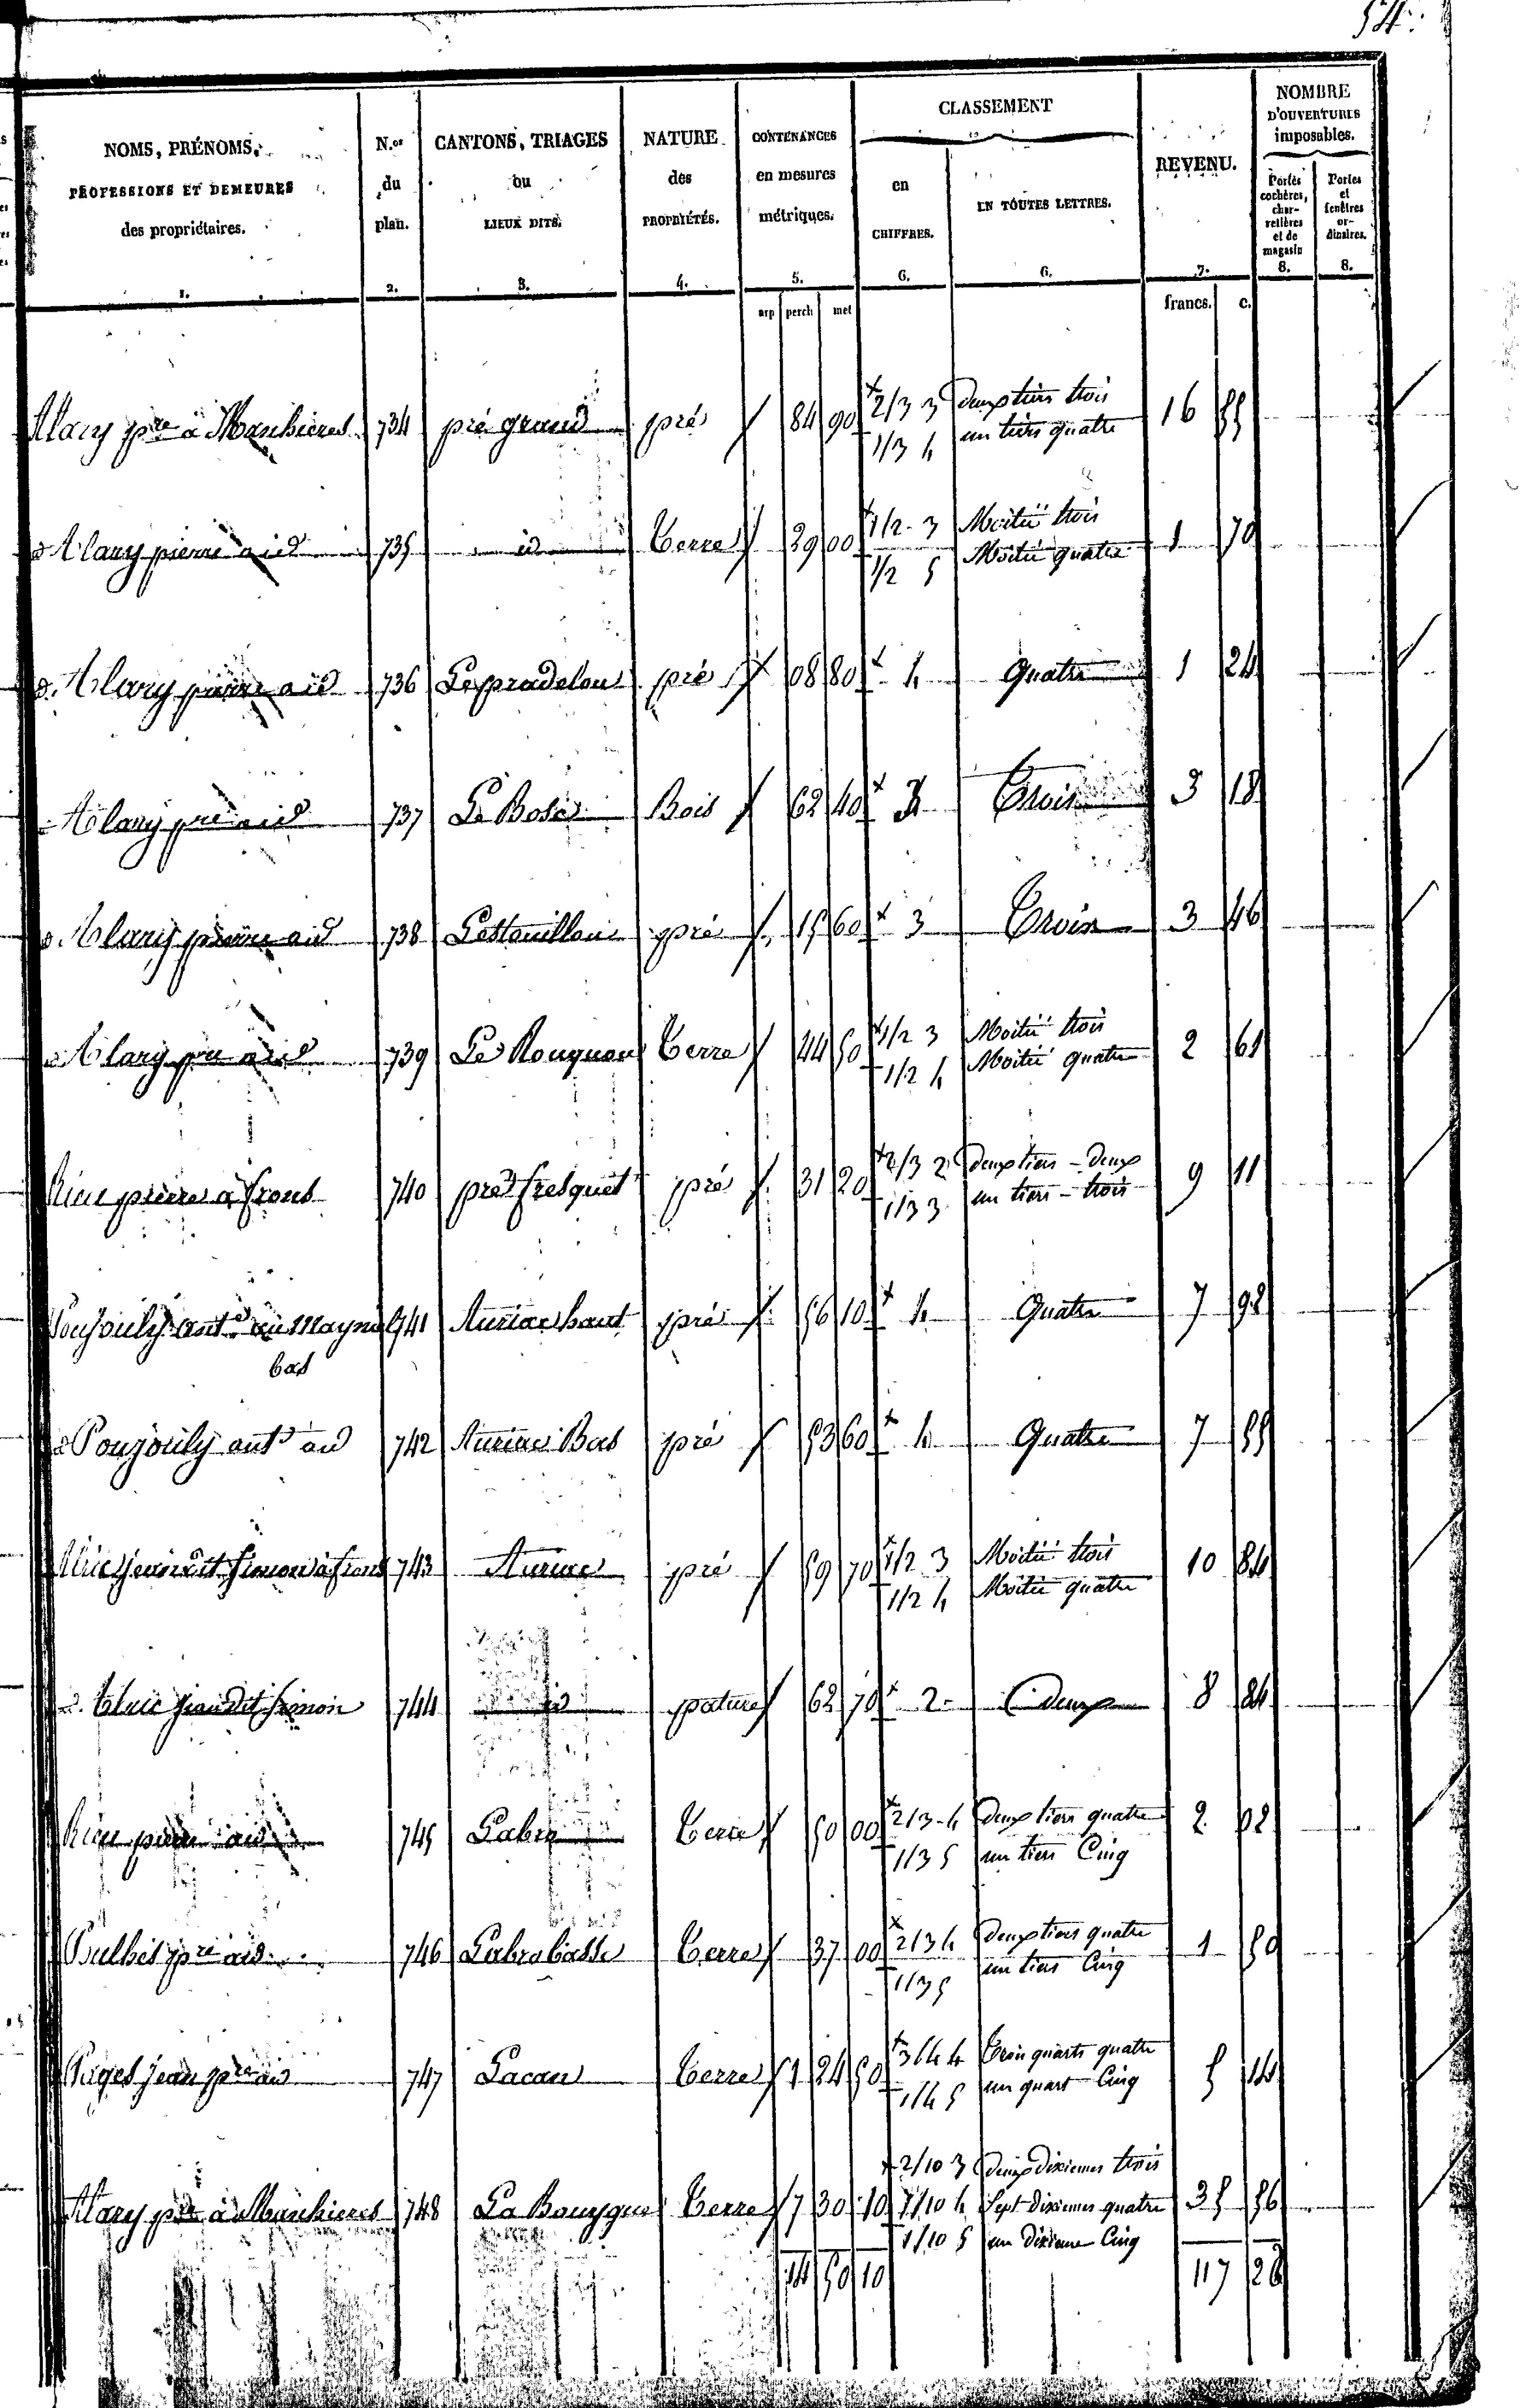 54.
NOMS, PRÉNOMS, PROFESSIONS ET DEMEURES des propriétaires. 1.
N.os du plan. 2.
CANTONS, TRIAGES ou LIEUX DITS. 3.
NATURE des PROPRIÉTÉS. 4.
CONTENANCES en mesures métriques. 5.
CLASSEMENT
en CHIFFRES. 6.
EN TOUTES LETTRES. 6.
REVENU. 7.
NOMBRE D'OUVERTURES imposables.
Portes cochères, charretières et de magasin 8.
Portes et fenêtres ordinaires. 8.
arp perch met francs. c.
Alary pre à 734 pré grand pré 84 90 2/3 3 deux tiers trois 16 55
1/3 4 un tiers quatre
d Alary pierre a id 735 id Terre 29 00 1/2 3 Moitié trois 1 70
1/2 5 Moitié quatre
d. Alary pierre a id 736 Le pradelou pré 08 80 4 Quatre 1 24
Alary pre a id 737 Le Bosc Bois 62 40 3 Trois 3 18
d Alary pierre a id 738 pré 15 60 3 Trois 3 46
d Alary pre a id 739 Le Terre 44 50 1/2 3 Moitié trois 2 61
1/2 4 Moitié quatre
Rieu pierre a frons 740 pré fresquet pré 31 20 2/3 2 deux tiers - deux 9 11
1/3 3 un tiers - trois
Poujouly ant. au Maynil 741 Auriac haut pré 56 10 4 Quatre 7 92
bas
d Poujouly ant. au id 742 Auriac Bas pré 53 60 4 Quatre 7 55
Alric jean dit simon à frons 743 Auriac pré 59 70 1/2 3 Moitié trois 10 84
1/2 4 Moitié quatre
d. Alric jean dit simon 744 id pature 62 70 2 deux 8 84
Rieu pierre a id 745 Labro Terre 50 00 2/3 4 deux tiers quatre 2 02
1/3 5 un tiers Cinq
pre a id 746 Labro basse Terre 37 00 2/3 4 deux tiers quatre 1 50
1/3 5 un tiers Cinq
Puges jean pre a id 747 Lacan Terre 1 24 50 3/4 4 Trois quarts quatre 5 14
1/4 5 un quart Cinq
2/10 3 deux dixiemes trois
Alary pre à 748 La Bouygue Terre 7 30 10 7/10 4 Sept dixiemes quatre 35 56
1/10 5 un dixieme Cinq
14 50 10 117 28